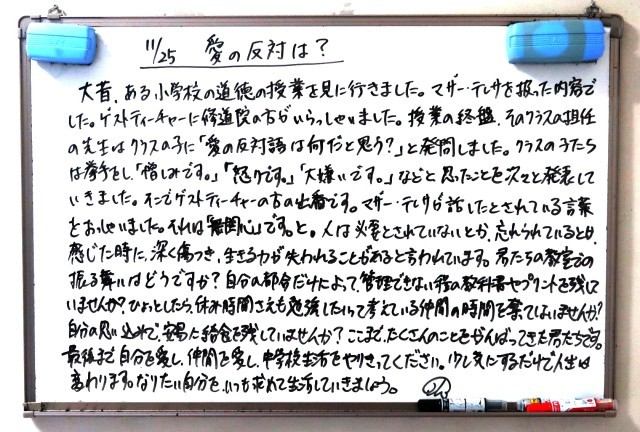 11/25 愛の反対は？
大昔、ある小学校の道徳の授業を見に行きました。マザーテレサを扱った内容で
した。ゲストティーチャーに修道院の方がいらっしゃいました。授業の終盤、そのクラスの担任
の先生はクラスの子に「愛の反対語は何だと思う？」と発問しました。クラスの子たち
は挙手をし「憎しみです。」「怒りです。」「大嫌いです。」などと思ったことを次々と発表して
いきました。そこでゲストティーチャーの方の出番です。マザーテレサが話したとされている言葉
をおっしゃいました。それは「無関心」です。と。人は必要とされていないとか、忘れられているとか
感じた時に、深く傷つき、生きる力が失われることがあると言われています。君たちの教室での
振る舞いはどうですか？自分の都合だけによって、管理できない程の教科書やプリントを残して
いませんか？ひょっとしたら、休み時間さえも勉強したいって考えている仲間の時間を奪ってはいませんか？
自分の思い込みで、安易に給食を残していませんか？ここまで、たくさんのことをがんばってきた君たちです。
最後まで自分を愛し、仲間を愛し、中学校生活をやりきってください。少し気にするだけで人生は
変わります。なりたい自分を、いつも求めて生活していきましょう。